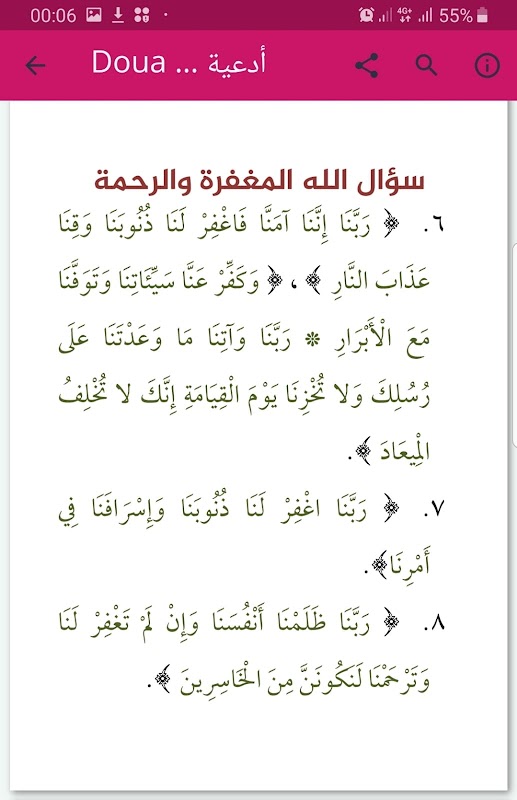 00:06 4G+ 55%
Doua ... أدعية
سؤال الله المغفرة والرحمة
٦. ﴿ رَبَّنَا إِنَّنَا آمَنَّا فَاغْفِرْ لَنَا ذُنُوبَنَا وَقِنَا
عَذَابَ النَّارِ ﴾ ، ﴿ وَكَفِّرْ عَنَّا سَيِّئَاتِنَا وَتَوَفَّنَا
مَعَ الْأَبْرَارِ * رَبَّنَا وَآتِنَا مَا وَعَدْتَنَا عَلَى
رُسُلِكَ وَلا تُخْزِنَا يَوْمَ الْقِيَامَةِ إِنَّكَ لا تُخْلِفُ
الْمِيعَادَ ﴾.
٧. ﴿ رَبَّنَا اغْفِرْ لَنَا ذُنُوبَنَا وَإِسْرَافَنَا فِي
أَمْرِنَا﴾.
٨. ﴿ رَبَّنَا ظَلَمْنَا أَنْفُسَنَا وَإِنْ لَمْ تَغْفِرْ لَنَا
وَتَرْحَمْنَا لَنَكُونَنَّ مِنَ الْخَاسِرِينَ ﴾.